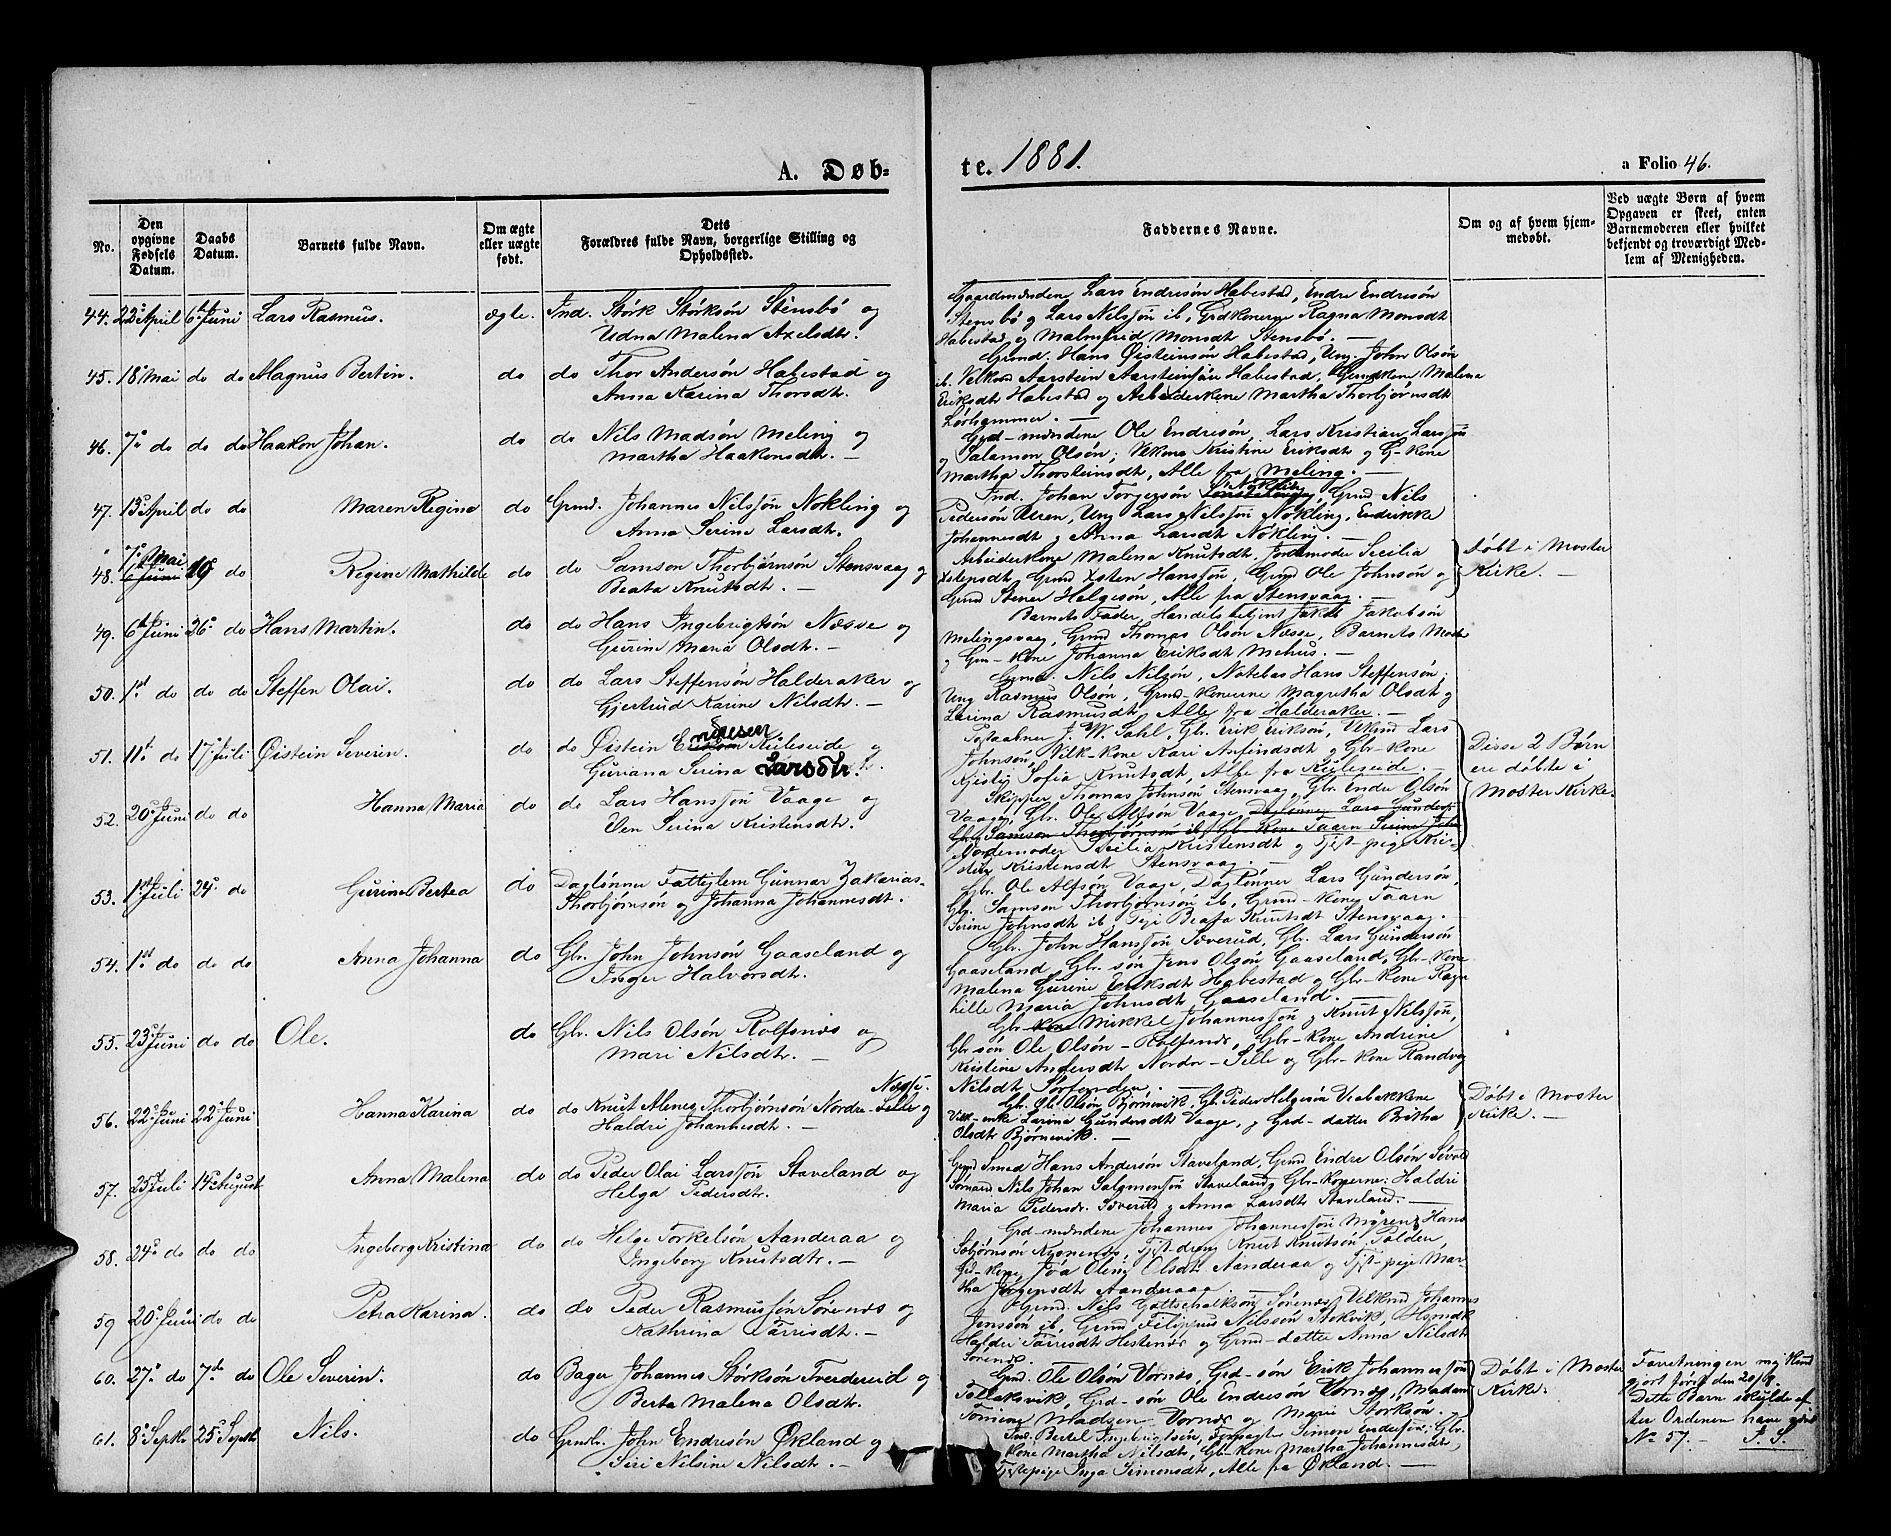 A. Døb=
te. 1881.
a Folio 46.
No.
Den opgivne Fødsels Datum.
Daabs Datum.
Barnets fulde Navn.
Om ægte eller uægte født.
Dets
Forældres fulde Navn, borgerlige Stilling og
Opholdssted.
Faddernes Navne.
Om og af hvem hjem-
medøbt.
Ved uægte Børn af hvem
Opgaven er skeet, enten
Barnemoderen eller hvilket
bekjendt og troværdigt Med-
lem af Menigheden.
44. 22 April 6 Juni Lars Rasmus. ægte. Ind. Størk Størksön Stensbö og
Udna Malena Axelsdtr.
Gaardmændene Lars Endresön Habestad, Endre Endresön
Stensbö og Lars Nilssön ib, Grdkonerne Ragna Monsdt
Habestad og Malmfrid Monsdt Stensbö. —
45. 18 Mai do do Magnus Bertin. do do Thor Andersön Habestad og
Anna Karina Thorsdt.
Grmd. Hans Øisteinsön Habestad, Ung. John Olsön
ib. Aarstein Aarsteinsön Habestad, Malena
Eriksdt Habestad og Arbeiderkone Martha Thorbjørnsdt
46. 7 do do do Haakon Johan. do do Nils Madsön Meling og
Martha Haakonsdt. —
Grd-mændene Ole Endresön, Lars Kristian Larssön
og Salamon Olsön; Kristine Eriksdt og G-kone
Martha Thorsteinsdt, Alle fra Meling. —
47. 13 April do do Maren Regina do Grmd. Johannes Nilssön Nökling og
Anna Serine Larsdt.
Ind. Johan Torgersön Nökling, Grmd Nils
Pedersön Ung Lars Nilssön Nökling, Endrikke
Johannesdt og Anna Larsdt Nökling. —
48. 7 Mai 19 do Regine Mathilde do do Samson Thorbjørnsön Stensvaag og
Beata Knutsdt. —
Arbeiderkone Malena Knutsdt, Jordmoder Secilia
Xstensdt, Grmd Xsten Hanssön, Grmd Ole Johnsön og
Grmd Stener Helgesön, Alle fra Stensvaag. —
døbt i Moster
Kirke. —
49. 6 Juni 26 do Hans Martin. do do Hans Ingebrigtsön Næsse og
Gurine Maria Olsdt. —
Barnets Fader, Handelsbetjent Jakob Jakobsön
Melingsvaag, Grmd Thomas Olsön Næsse, Barnets Moder
og Gm-kone Johanna Eriksdt Mehus. —
50. 1st do do do Steffen Olai. do do Lars Steffensön Halderaker og
Gjertrud Karine Nilsdt. —
Grmd. Nils Nilsön, Notebas Hans Steffensön;
Ung Rasmus Olsön, Grmd-konerne Magretha Olsdt og
Larina Rasmusdt, Alle fra Halderaker. —
51. 11 do 17 Juli Øistein Severin. do do Øistein Endresen Kuleseide og
Guriana Serina Larsdtr.
Postaabner J. W. Sahl, Gbr. Erik Eriksön, Lars
Johnsön, Kari Anfindsdt og Gbr-kone
Sofia Knutsdt, Alle fra Kuleseide. —
Disse 2 Børn
ere döbte i
Moster Kirke.
52. 20 Juni do do Hanna Maria do do Lars Hanssön Vaage og
Serina Kristensdt.
Skipper Thomas Johnsön Stensvaag, Gbr. Endre Olsön
Vaage, Gbr. Ole Alfsön Vaage, Daglönner Lars Gunders
Samson Thorbjørnsön ib, Gbr. kone Taarn Serine John
Jordemoder Secilia Kristensdt og Tjst-pige Kri-
Kristensdt Stensvaag. —
53. 1st Juli 24 do Gurine Bertea do Daglönner Fattiglem Gunnar Zakarias-
Thorbjørnsön og Johanna Johannesdt.
Gbr. Ole Alfsön Vaage, Daglönner Lars Gundersön,
Gbr. Samson Thorbjørnsön ib, Grmd-kone Taarn
Serine Johnsdt ib Pige Beata Knutsdt Stensvaag. —
54. 1st do do do Anna Johanna do Gbr. John Johnsön Gaaseland og
Inger Halvorsdt.
Gbr. John Hanssön Söverud, Gbr. Lars Gundersön
Gaaseland, Gbr. sön Jens Olsön Gaaseland, Gbr-kone
Malena Gurine Eriksdt Habestad og Gbr-kone Ragn
hille Maria Johnsdt, Gaaseland. —
55. 23 Juni do do Ole. do Gbr. Nils Olsön Rolfsnes og
Mari Nilsdt. —
Gbr Mikkel Johannessön og Knut Nilssön,
Gbr sön Ole Olsön Rolfsnes, Gbr-kone Andrine
Kristene Andersdt Nordre-Selle og Gbr-kone Randveg
Nilsdt —
56. 22 Juni 22 Juni Hanna Karina do do Knut Thorbjørnsön Nordre-Selle og
Haldri Johannesdt. —
Gbr. Ole Olsön Björnevik, Gbr Peder Helgesön
enke Larina Gundersdt Vaage, og Grd-datter Britha
Olsdt Björnevik. —
Döbt i Moster
Kirke. —
57. 25 Juli 14 August Anna Malena do do Peder Olai Larssön Staveland og
Helga Pedersdt.
Grmd Smed Hans Andersön Staveland, Grmd Endre Olsön
Nils Johan Salamonsön Staveland, Gbr-konerne: Haldri
Maria Pedersdt. Söverud og Anna Larsdt Staveland. —
58. 24 do do do Ingeborg Kristina do do Helge Torkelsön Aanderaa og
Ingeborg Knutsdtr. —
Grd-mændene Johannes Johannessön Myren, Hans
Tjst-dreng Knut Knutsön
Grd-kone Olsdt. Aanderaa og Tjst-pige Mar-
tha Jörgensdt Aanderaa —
59 20 Juni do do Petra Karina. do do Peder Rasmussön Sörenes og
Kathrina Tarrisdt. —
Grmd. Nils Gottschalksön Sörenes, Johannes
Jenssön ib. Grmd Filippus Nilssön Stokvik,
Haldri Tarrisdt Hestenes og Grmd-datter Anna Nilsdt
Sörenes —
60. 27 do 7de do Ole Severin. do Bager Johannes Störksön Tverdereid og
Berta Malena Olsdt.
Grmd. Ole Olsön Vornes, Grd-sön Erik Johannessön
Tollaksvik, Grd-sön Ole Endresön Vornes, Madam
Tomine Madsen Vornes og Marie Storksön. —
Döbt i Moster
Kirke.
Foretningen mig kund
gjort først den 20/9.
Dette Barn skulde ef
ter Ordenen have været
No 57. — F. S.
61. 8 Septbr 25 Septbr Nils. do Grmbr. John Endresön Økland og
Siri Nilsine Nilsdt. —
Ind. Bertel Ingebrigtsön, Simon Endresön, Gbr.
kone Martha Nilsdt, Gbr-kone Martha Johannesdt,
Tjstepige Inga Simonsdt, Alle fra Økland. —